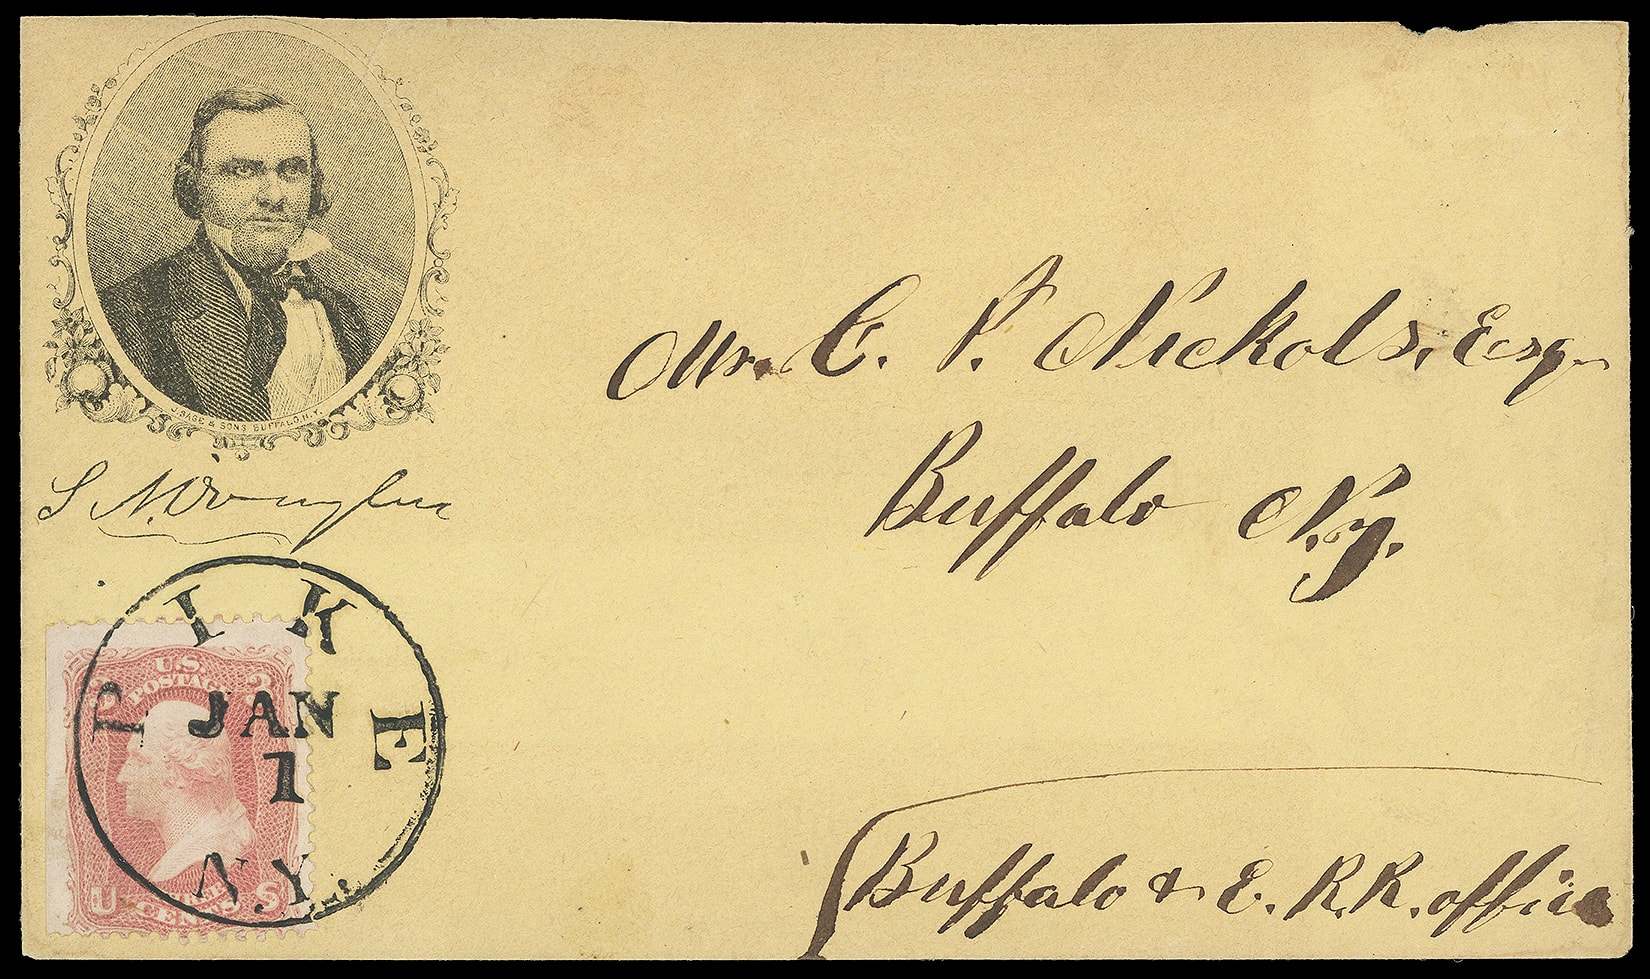 J. SAGE & SONS BUFFALO, N.Y.
S. N.
PIKE
JAN
1
N.Y.
U.S.
POSTAGE
3 3
U S
THREE
CENTS
Mr. C. P. Nichols, Esq.
Buffalo N.Y.
Buffalo & E. R.R. office